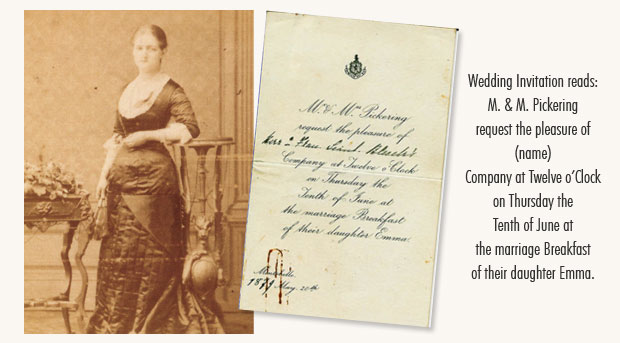 Mr. & Mrs. Pickering
request the pleasure of
Herr & Frau
Company at Twelve o'Clock
on Thursday the
Tenth of June at
the marriage Breakfast
of their daughter Emma.
May 20th
Wedding Invitation reads:
M. & M. Pickering
request the pleasure of
(name)
Company at Twelve o'Clock
on Thursday the
Tenth of June at
the marriage Breakfast
of their daughter Emma.